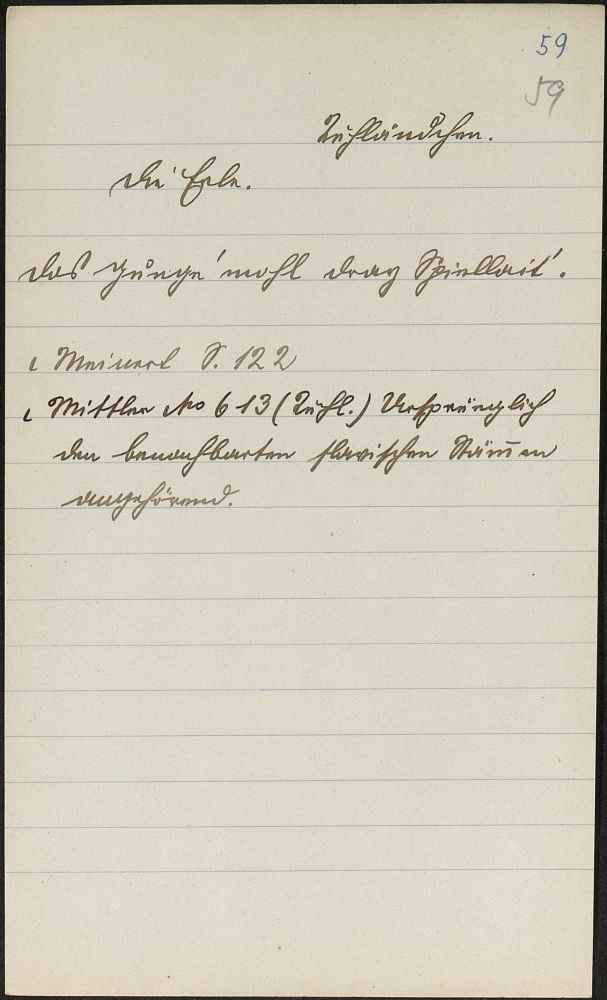 59
59
Kuhländchen.
Die Erle.
Das zünge' mohl dray Spiellait'.
Meinert S. 122
Mittler No 613 (Kuhl.) Ursprünglich
den benachbarten slavischen Stäm̄en
angehörend.